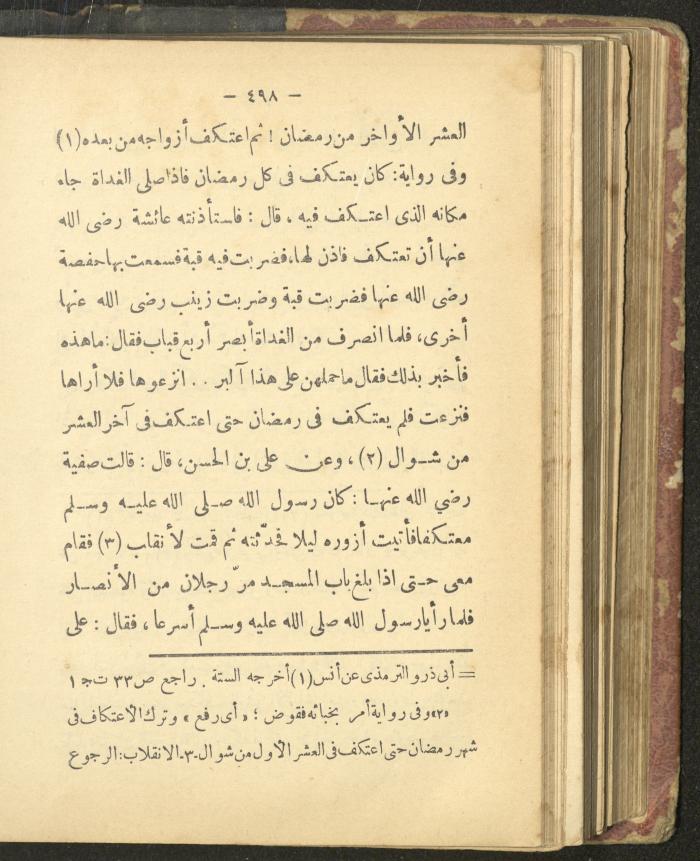 — ٤٩٨ —
العشر الأواخر من رمضان ! ثم اعتكف أزواجه من بعده (١)
وفى رواية: كان يعتكف فى كل رمضان فاذا صلى الغداة جاء
مكانه الذى اعتكف فيه ، قال : فاستأذنته عائشة رضى الله
عنها أن تعتكف فاذن لها، فضربت فيه قبة فسمعت بها حفصة
رضى الله عنها فضربت قبة وضربت زينب رضى الله عنها
أخرى، فلما انصرف من الغداة أبصر أربع قباب فقال: ماهذه
فأخبر بذلك فقال ماحملهن على هذا آلبر . . انزعوها فلا أراها
فنزعت فلم يعتكف فى رمضان حتى اعتكف فى آخر العشر
من شوال (٢) ، وعن على بن الحسن، قال : قالت صفية
رضي الله عنها : كان رسول الله صلى الله عليه وسلم
معتكفا فأتيت أزوره ليلا فحدّثته ثم قمت لأنقاب (٣) فقام
معى حتى اذا بلغ باب المسجد مرّ رجلان من الأنصار
فلما رأيا رسول الله صلى الله عليه وسلم أسرعا ، فقال : على
= أبى ذر والترمذى عن أنس (١) أخرجه الستة . راجع ص ٣٣ ت ج ١
«٢» وفى رواية أمر بخبائه فقوض ؛ «أى رفع» وترك الاعتكاف فى
شهر رمضان حتى اعتكف فى العشر الأول من شوال -٣- الانقلاب: الرجوع